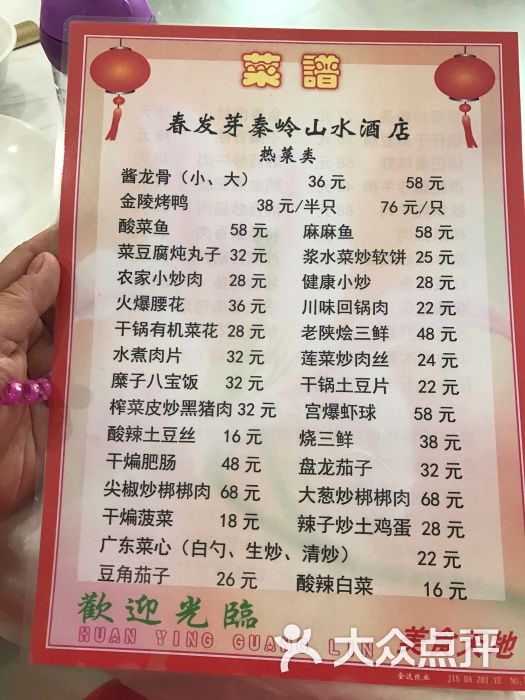 菜譜
春发芽秦岭山水酒店
热菜类
酱龙骨（小、大） 36 元 58 元
金陵烤鸭 38 元/半只 76 元/只
酸菜鱼 58 元 麻麻鱼 58 元
菜豆腐炖丸子 32 元 浆水菜炒软饼 25 元
农家小炒肉 28 元 健康小炒 28 元
火爆腰花 36 元 川味回锅肉 22 元
干锅有机菜花 28 元 老陕烩三鲜 48 元
水煮肉片 32 元 莲菜炒肉丝 24 元
糜子八宝饭 32 元 干锅土豆片 22 元
榨菜皮炒黑猪肉 32 元 宫爆虾球 58 元
酸辣土豆丝 16 元 烧三鲜 38 元
干煸肥肠 48 元 盘龙茄子 32 元
尖椒炒梆梆肉 68 元 大葱炒梆梆肉 68 元
干煸菠菜 18 元 辣子炒土鸡蛋 28 元
广东菜心（白勺、生炒、清炒） 22 元
豆角茄子 26 元 酸辣白菜 16 元
歡迎光臨
HUAN YING GUANG LIN
美食 地
大众点评
金达纸业 JIN DA ZHI YE NO.